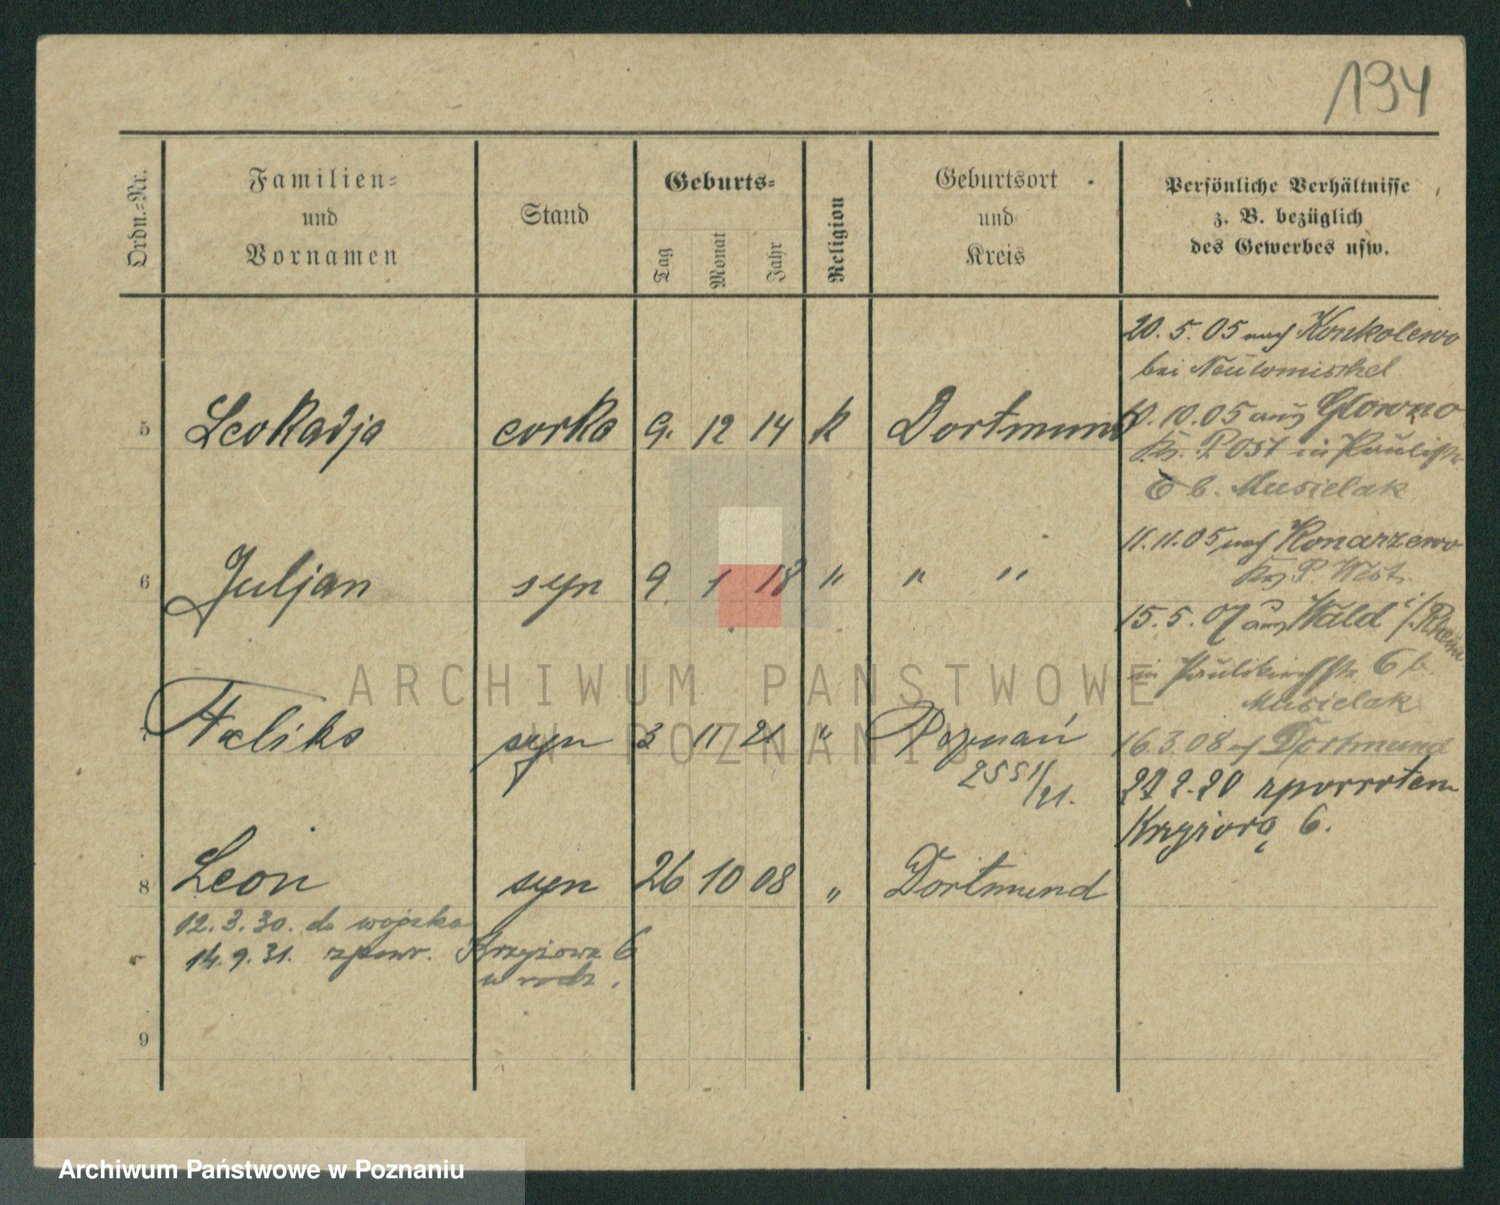 194
Ordn.-Nr.
Familien-
und
Vornamen
Stand
Geburts-
Tag
Monat
Jahr
Religion
Geburtsort
und
Kreis
Persönliche Verhältnisse
z. B. bezüglich
des Gewerbes usw.
20. 5. 05 nach Konkolewo
bei Neutomischel
5 Leokadja corka 9. 12 14 k Dortmund
10. 10. 05 aus Glowno
Kr. P. Ost in
6 b. Musielak
11. 11. 05 nach Konarzewo
Kr. P. West.
6 Juljan syn 9 1 18 " " "
15. 5. 07 aus Wald i/Rheinl
in Paulikirchstr. 6 b.
Musielak
7 Feliks syn 3 11 21 " Poznań
2551/
/21.
16. 3. 08 n/ Dortmund
27 2. 20 zpowrotem
Krzyżowa 6.
8 Leon syn 26 10 08 " Dortmund
12. 3. 30. do wojska
14. 9. 31. zpowr. Krzyżowa 6
w rodz.
9
ARCHIWUM PAŃSTWOWE
W POZNANIU
Archiwum Państwowe w Poznaniu